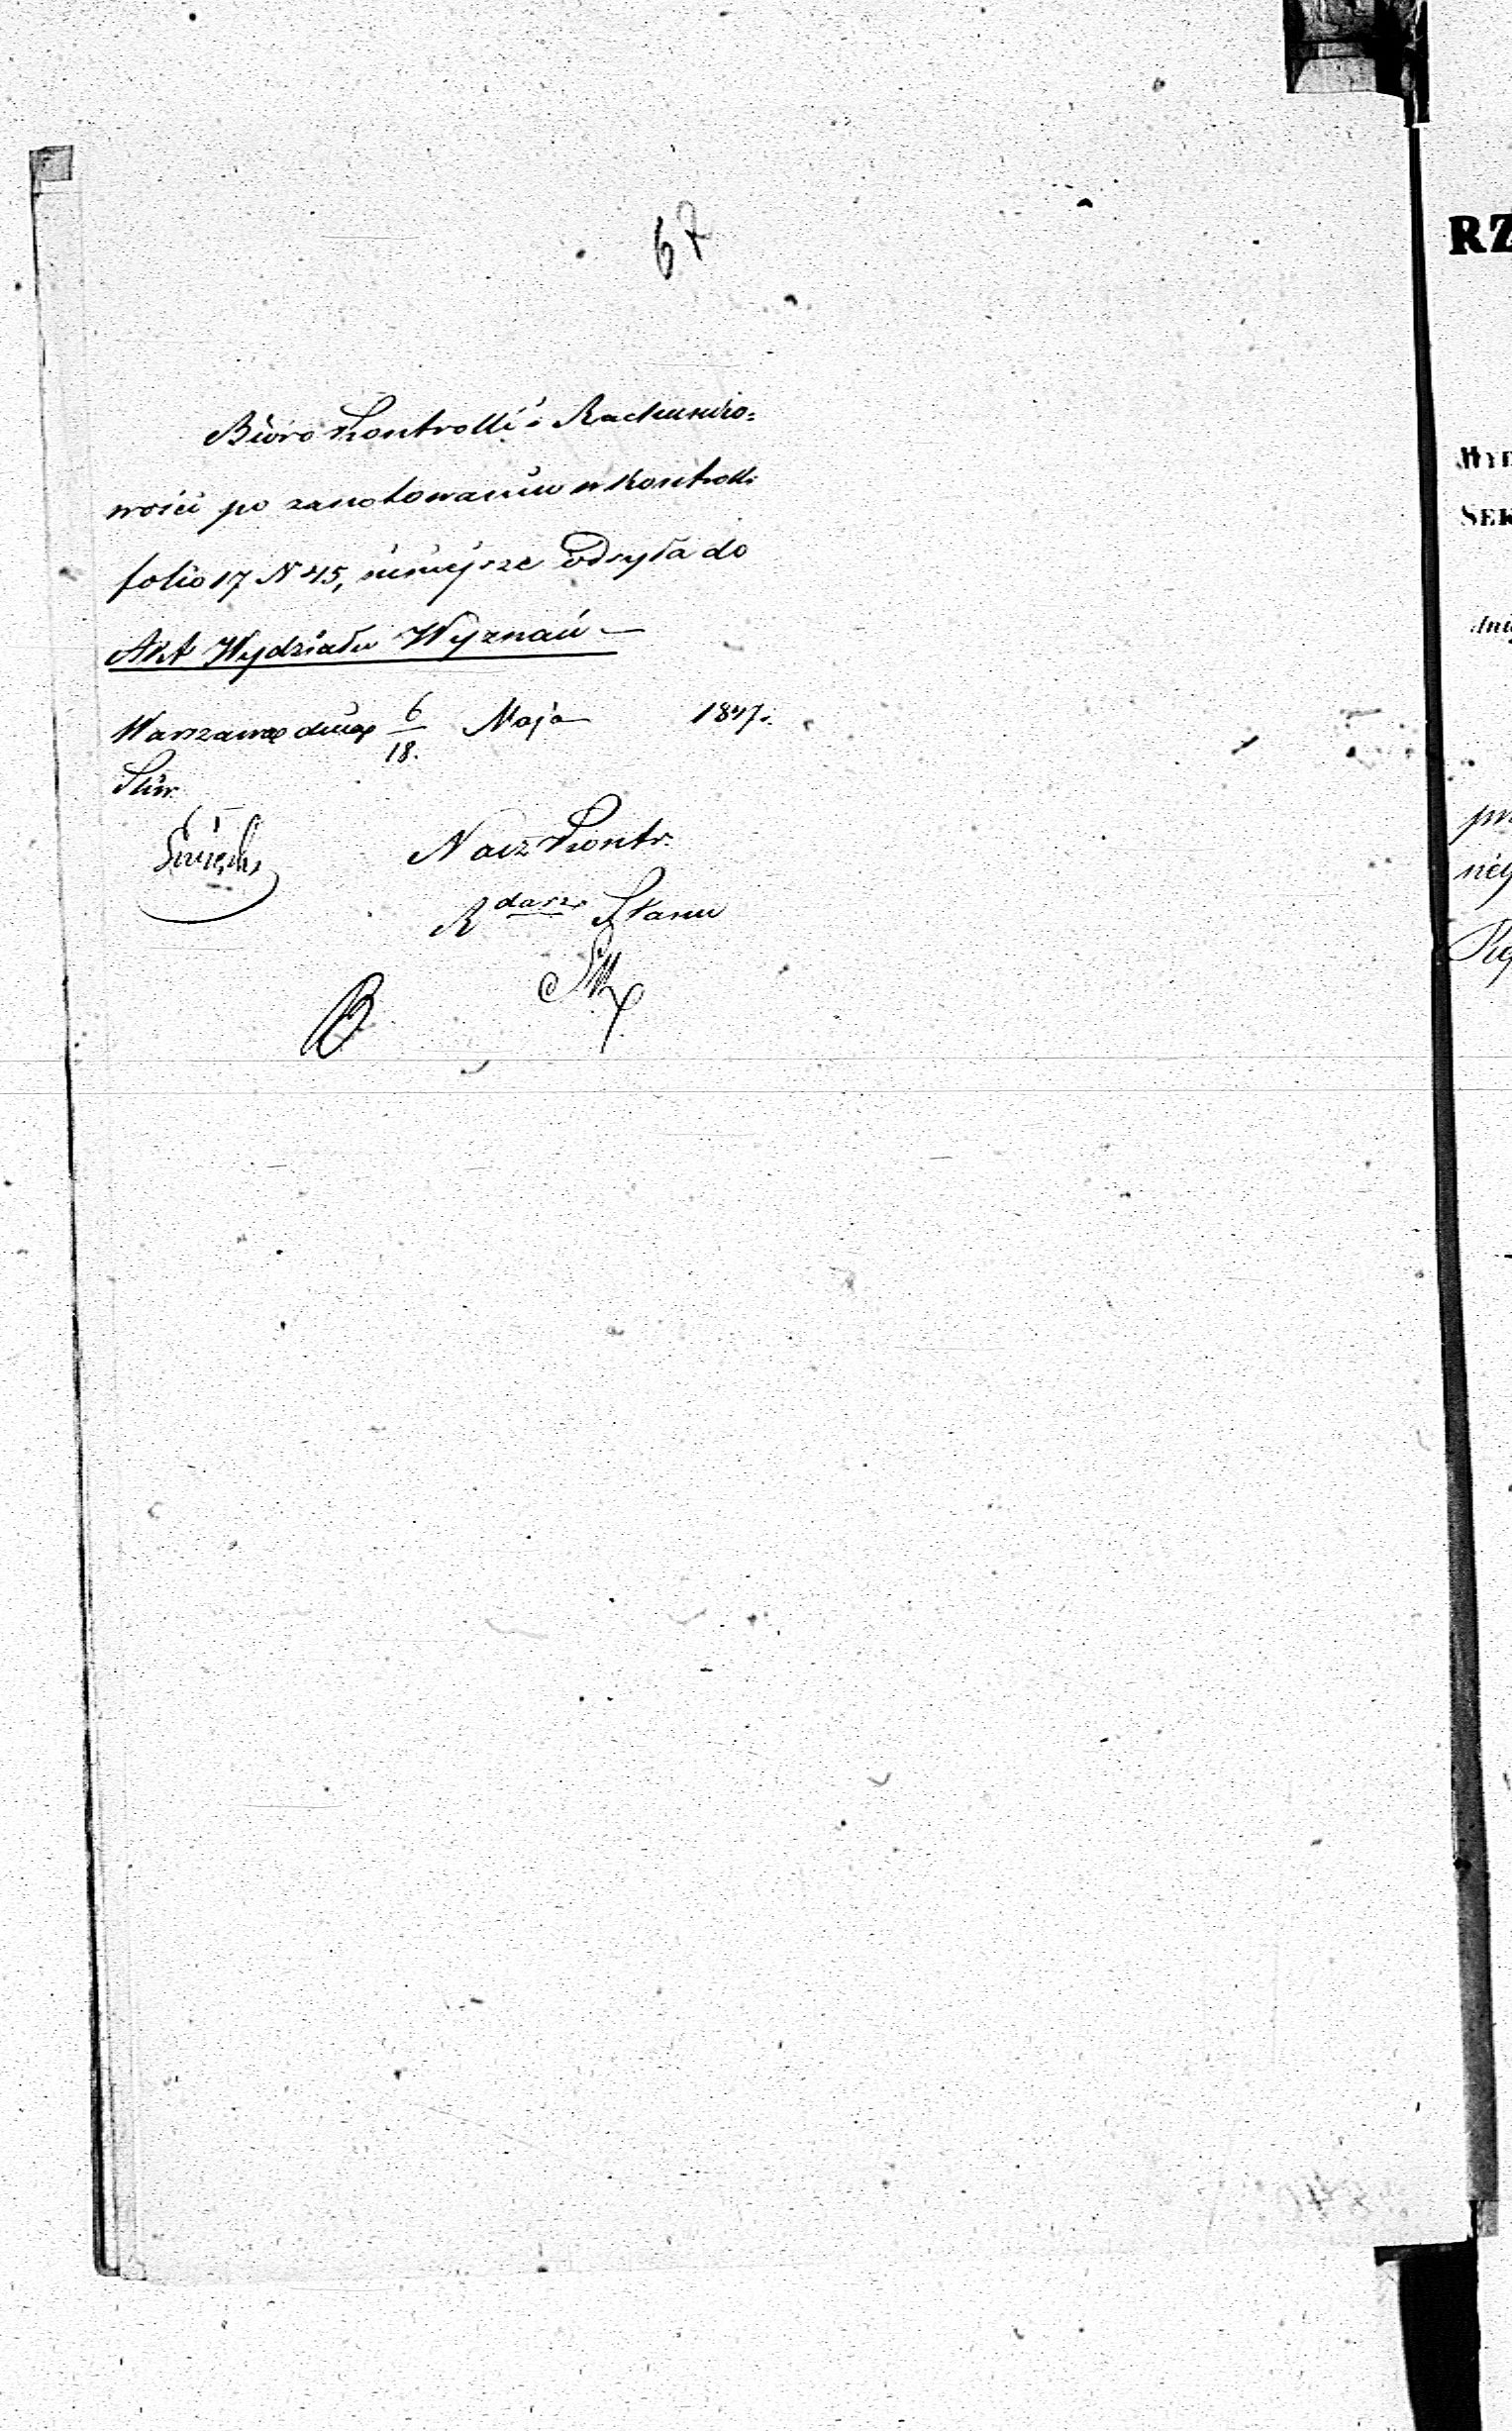 67
Biuro Kontrolli i Rachunko-
wości po zanotowaniu w Kontrolli
folio 17 N 45, niniejsze odsyła do
Akt Wydziału Wyznań —
Warszawa dnia 6/18. Maja 1847.
Nacz Kontr.
Rdarz Stanu
RZ
WYD
SEK
pr
niej